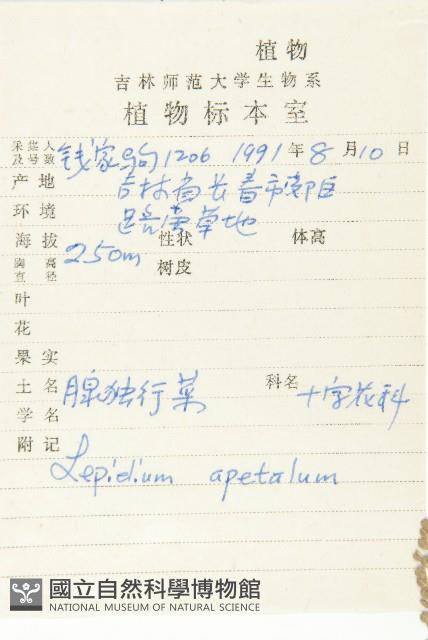 植物
吉林师范大学生物系
植物标本室
采集人及号数 钱家驹 1206 1991 年 8 月 10 日
产地 吉林省长春市郊区
环境 路旁草地
海拔 250m 性状 体高
胸高直径 树皮
叶
花
果实
土名 腺独行菜 科名 十字花科
学名
附记 Lepidium apetalum
國立自然科學博物館
NATIONAL MUSEUM OF NATURAL SCIENCE